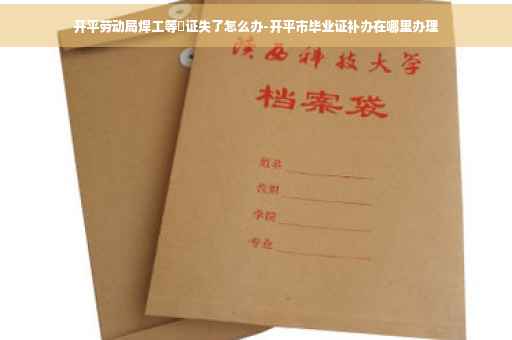 开平劳动局焊工等�证失了怎么办-开平市毕业证补办在哪里办理
陕西科技大学
档案袋
姓名
学院
专业